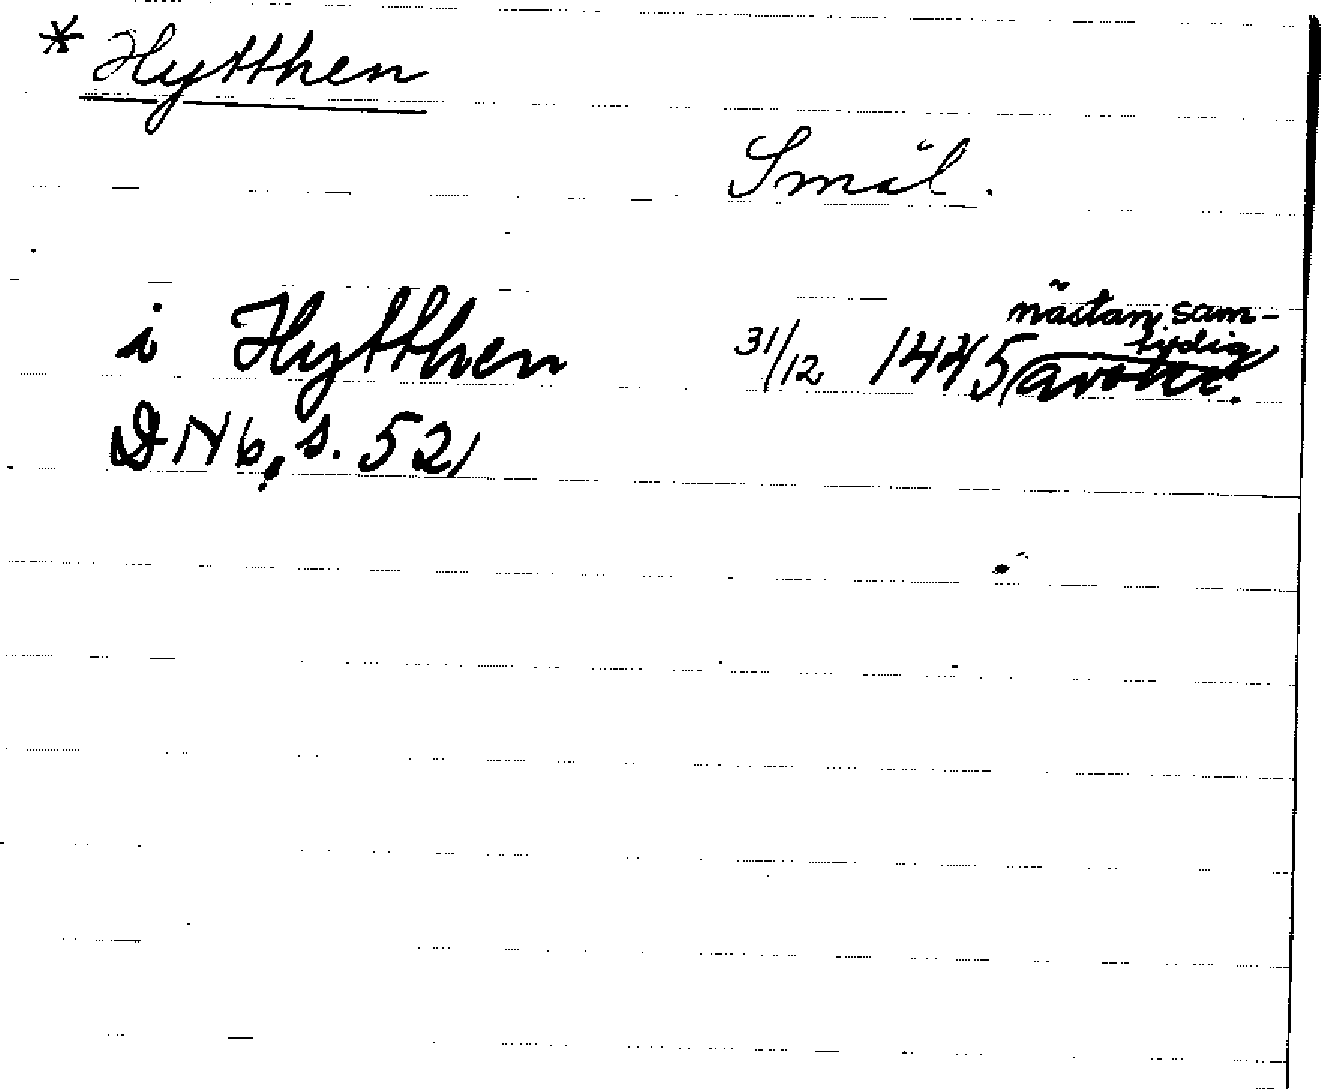 * Hytthen
Smål.
i Hytthen 31/12 1445 nästan sam-
tydig avskr.
DN 6, s. 521